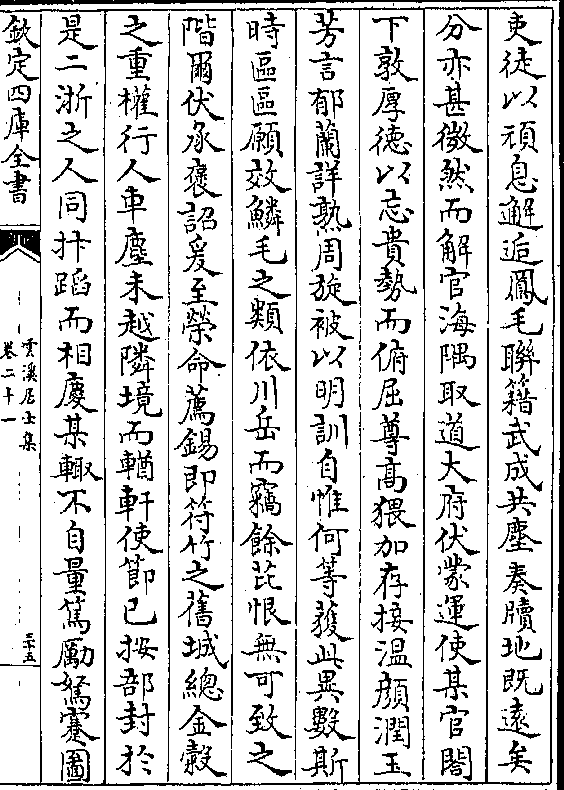 吏徒以頑息邂逅鳳毛聯籍武成共塵奏牘地既遠矣
分亦甚微然而解官海隅取道大府伏蒙運使某官閣
下敦厚德以忘貴勢而俯屈尊髙猥加存接溫顔潤玉
芳言郁蘭詳熟周旋被以明訓自惟何等獲此異數斯
時區區願效鱗毛之類依川岳而竊餘芘恨無可致之
階爾伏承褒詔爰至榮命薦錫即符竹之舊城總金糓
之重權行人車塵未越隣境而輶軒使節已按部封於
是二浙之人同抃蹈而相慶某輙不自量篤勵駑蹇圖
欽定四庫全書
雲溪居士集
卷二十一
三十五